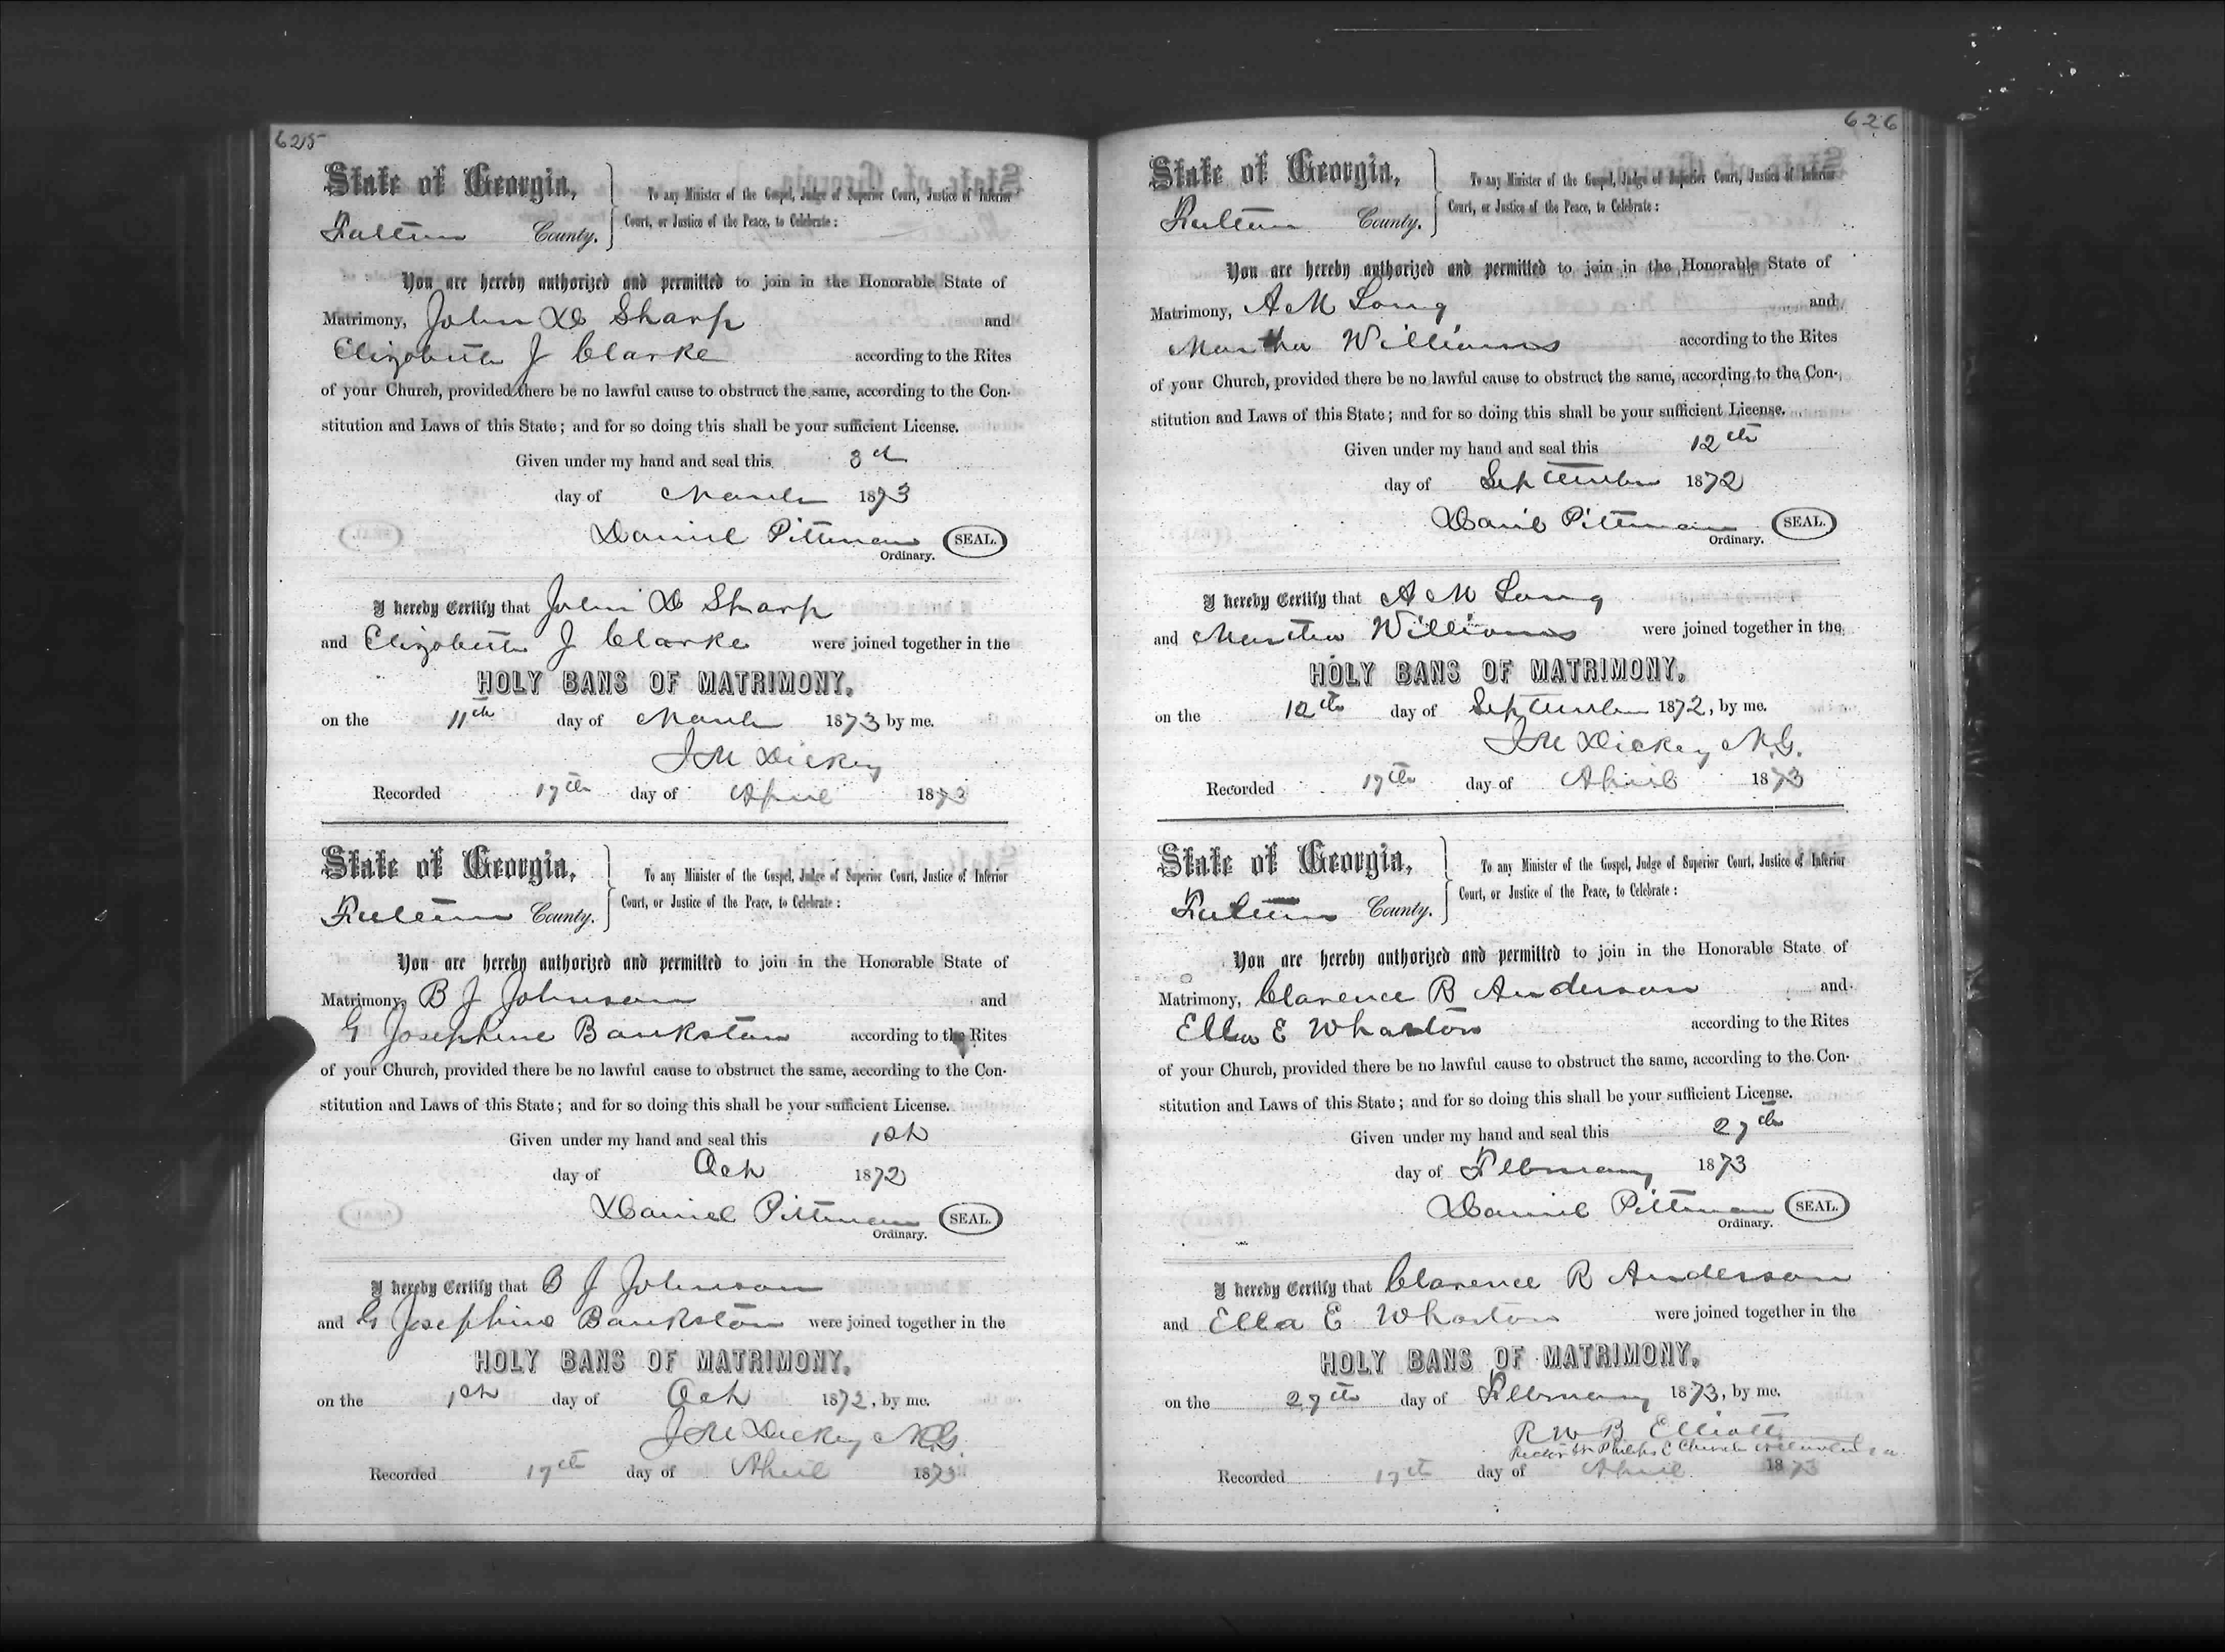 625
State of Georgia,
Fulton County.
To any Minister of the Gospel, Judge of Superior Court, Justice of Inferior
Court, or Justice of the Peace, to Celebrate:
You are hereby authorized and permitted to join in the Honorable State of
Matrimony, John D Sharp and
Elizabeth J Clarke according to the Rites
of your Church, provided there be no lawful cause to obstruct the same, according to the Con-
stitution and Laws of this State; and for so doing this shall be your sufficient License.
Given under my hand and seal this 3d
day of March 1873
Daniel Pittman SEAL.
Ordinary.
I hereby Certify that John D Sharp
and Elizabeth J Clarke were joined together in the
HOLY BANS OF MATRIMONY,
on the 11th day of March 1873 by me.
J M Dickey
Recorded 17th day of April 1873
State of Georgia,
Fulton County.
To any Minister of the Gospel, Judge of Superior Court, Justice of Inferior
Court, or Justice of the Peace, to Celebrate:
You are hereby authorized and permitted to join in the Honorable State of
Matrimony, B J Johnson and
G Josephine Bankston according to the Rites
of your Church, provided there be no lawful cause to obstruct the same, according to the Con-
stitution and Laws of this State; and for so doing this shall be your sufficient License.
Given under my hand and seal this 1st
day of Oct 1872
Daniel Pittman SEAL.
Ordinary.
I hereby Certify that B J Johnson
and G Josephine Bankston were joined together in the
HOLY BANS OF MATRIMONY,
on the 1st day of Oct 1872, by me.
J M Dickey M.G.
Recorded 17th day of April 1873
626
State of Georgia,
Fulton County.
To any Minister of the Gospel, Judge of Superior Court, Justice of Inferior
Court, or Justice of the Peace, to Celebrate:
You are hereby authorized and permitted to join in the Honorable State of
Matrimony, A M Long and
Martha Williams according to the Rites
of your Church, provided there be no lawful cause to obstruct the same, according to the Con-
stitution and Laws of this State; and for so doing this shall be your sufficient License.
Given under my hand and seal this 12th
day of September 1872
Daniel Pittman SEAL.
Ordinary.
I hereby Certify that A M Long
and Martha Williams were joined together in the
HOLY BANS OF MATRIMONY,
on the 12th day of September 1872, by me.
J M Dickey M.G.
Recorded 17th day of April 1873
State of Georgia,
Fulton County.
To any Minister of the Gospel, Judge of Superior Court, Justice of Inferior
Court, or Justice of the Peace, to Celebrate:
You are hereby authorized and permitted to join in the Honorable State of
Matrimony, Clarence B Anderson and
Ella E Wharton according to the Rites
of your Church, provided there be no lawful cause to obstruct the same, according to the Con-
stitution and Laws of this State; and for so doing this shall be your sufficient License.
Given under my hand and seal this 27th
day of February 1873
Daniel Pittman SEAL.
Ordinary.
I hereby Certify that Clarence R Anderson
and Ella E Wharton were joined together in the
HOLY BANS OF MATRIMONY,
on the 27th day of February 1873, by me.
R W B Elliott
Rector St Philips Church Atlanta Ga.
Recorded 17th day of April 1873